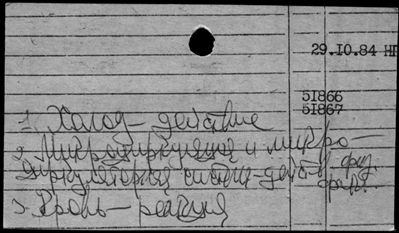 29.IO.84 НГ
5I866
5I867
1. Холод – действие
2. Микроциркуляция и микро-
циркуляторная система – действ. физ.
факт.
3. Кровь – реакция